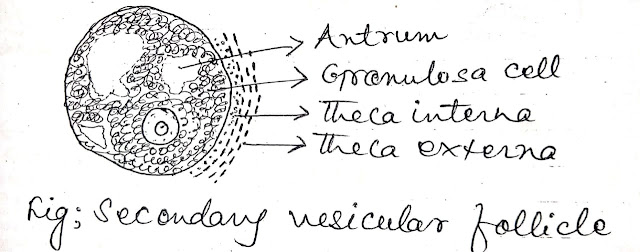 Antrum
Granulosa cell
Theca interna
Theca externa
Fig; Secondary vesicular follicle